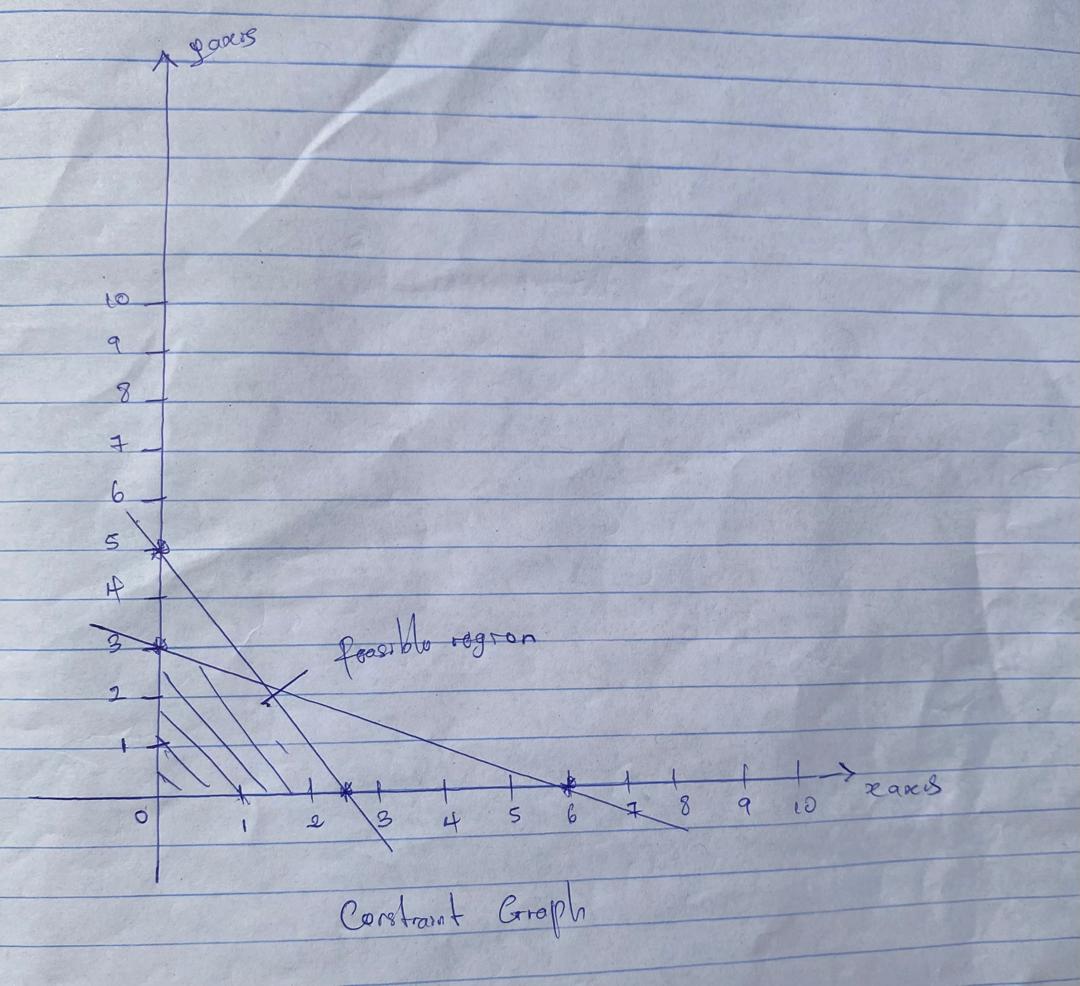 y axis
10
9
8
7
6
5
4
3
feasible region
2
1
0
1 2 3 4 5 6 7 8 9 10
x axis
Constraint Graph